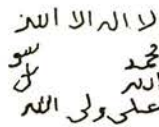 لا اله الا الله
محمد رسول
الله
علی ولی الله